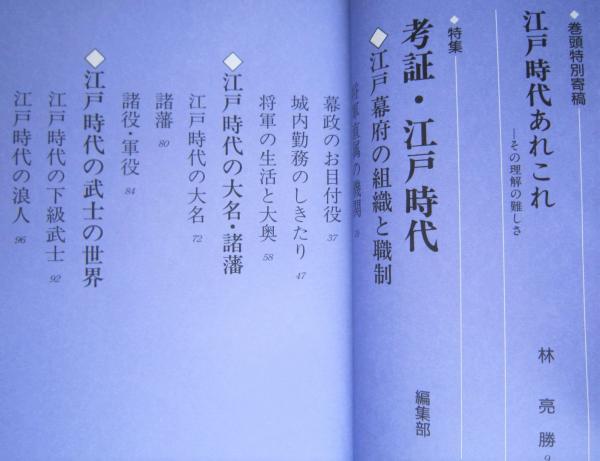 ◆巻頭特別寄稿
江戸時代あれこれ
―その理解の難しさ
林 亮勝 9
◆特集
考証・江戸時代
編集部
◇江戸幕府の組織と職制
将軍直属の機関
幕政のお目付役 37
城内勤務のしきたり 47
将軍の生活と大奥 58
◇江戸時代の大名・諸藩
江戸時代の大名 72
諸藩 80
諸役・軍役 84
◇江戸時代の武士の世界
江戸時代の下級武士 92
江戸時代の浪人 96